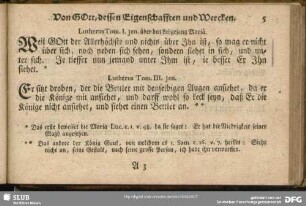 Von GOtt, dessen Eigenschafften und Wercken. 5
Lutherus Tom. I. Jen. über das Lobgesang Mariä.
Weil GOtt der Allerhöchste und nichts über Ihn ist, so mag er nicht
über sich, noch neben sich sehen, sondern siehet in sich, und un-
ter sich. Je tieffer nun jemand unter Ihm ist, je besser Er Ihn
siehet. *
Lutherus Tom. III. Jen.
Er sitzt droben, der die Bettler mit denselbigen Augen ansiehet, da er
die Könige mit ansiehet, und darff wohl so keck seyn, daß Er die
Könige nicht ansiehet, und siehet einen Bettler an. * *
* Das erste beweiset die Maria Luc. c. 1. v. 48. da sie saget: Er hat die Niedrigkeit seiner
Magd angesehen.
* * Das andere der König Saul, von welchem es 1. Sam. c. 16. v. 7. heisset: Siehe
nicht an, seine Gestalt, noch seine grosse Person, ich habe ihn verworffen.
A 3